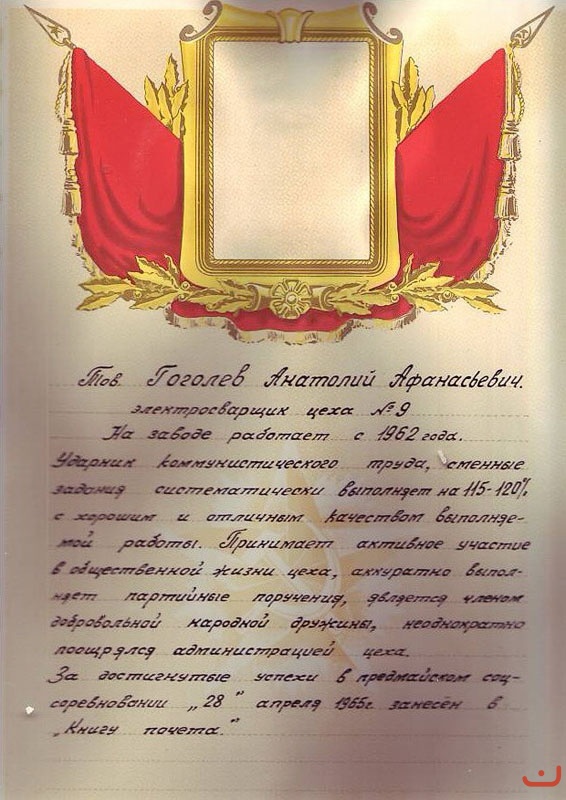 Тов. Гоголев Анатолий Афанасьевич.
электросварщик цеха №9
На заводе работает с 1962 года.
Ударник коммунистического труда, сменные
задания систематически выполняет на 115-120%
с хорошим и отличным качеством выполняе-
мой работы. Принимает активное участие
в общественной жизни цеха, аккуратно выпол-
няет партийные поручения, является членом
добровольной народной дружины, неоднократно
поощрялся администрацией цеха.
За достигнутые успехи в предмайском соц-
соревновании „28" апреля 1965г. занесён в
„Книгу почета."